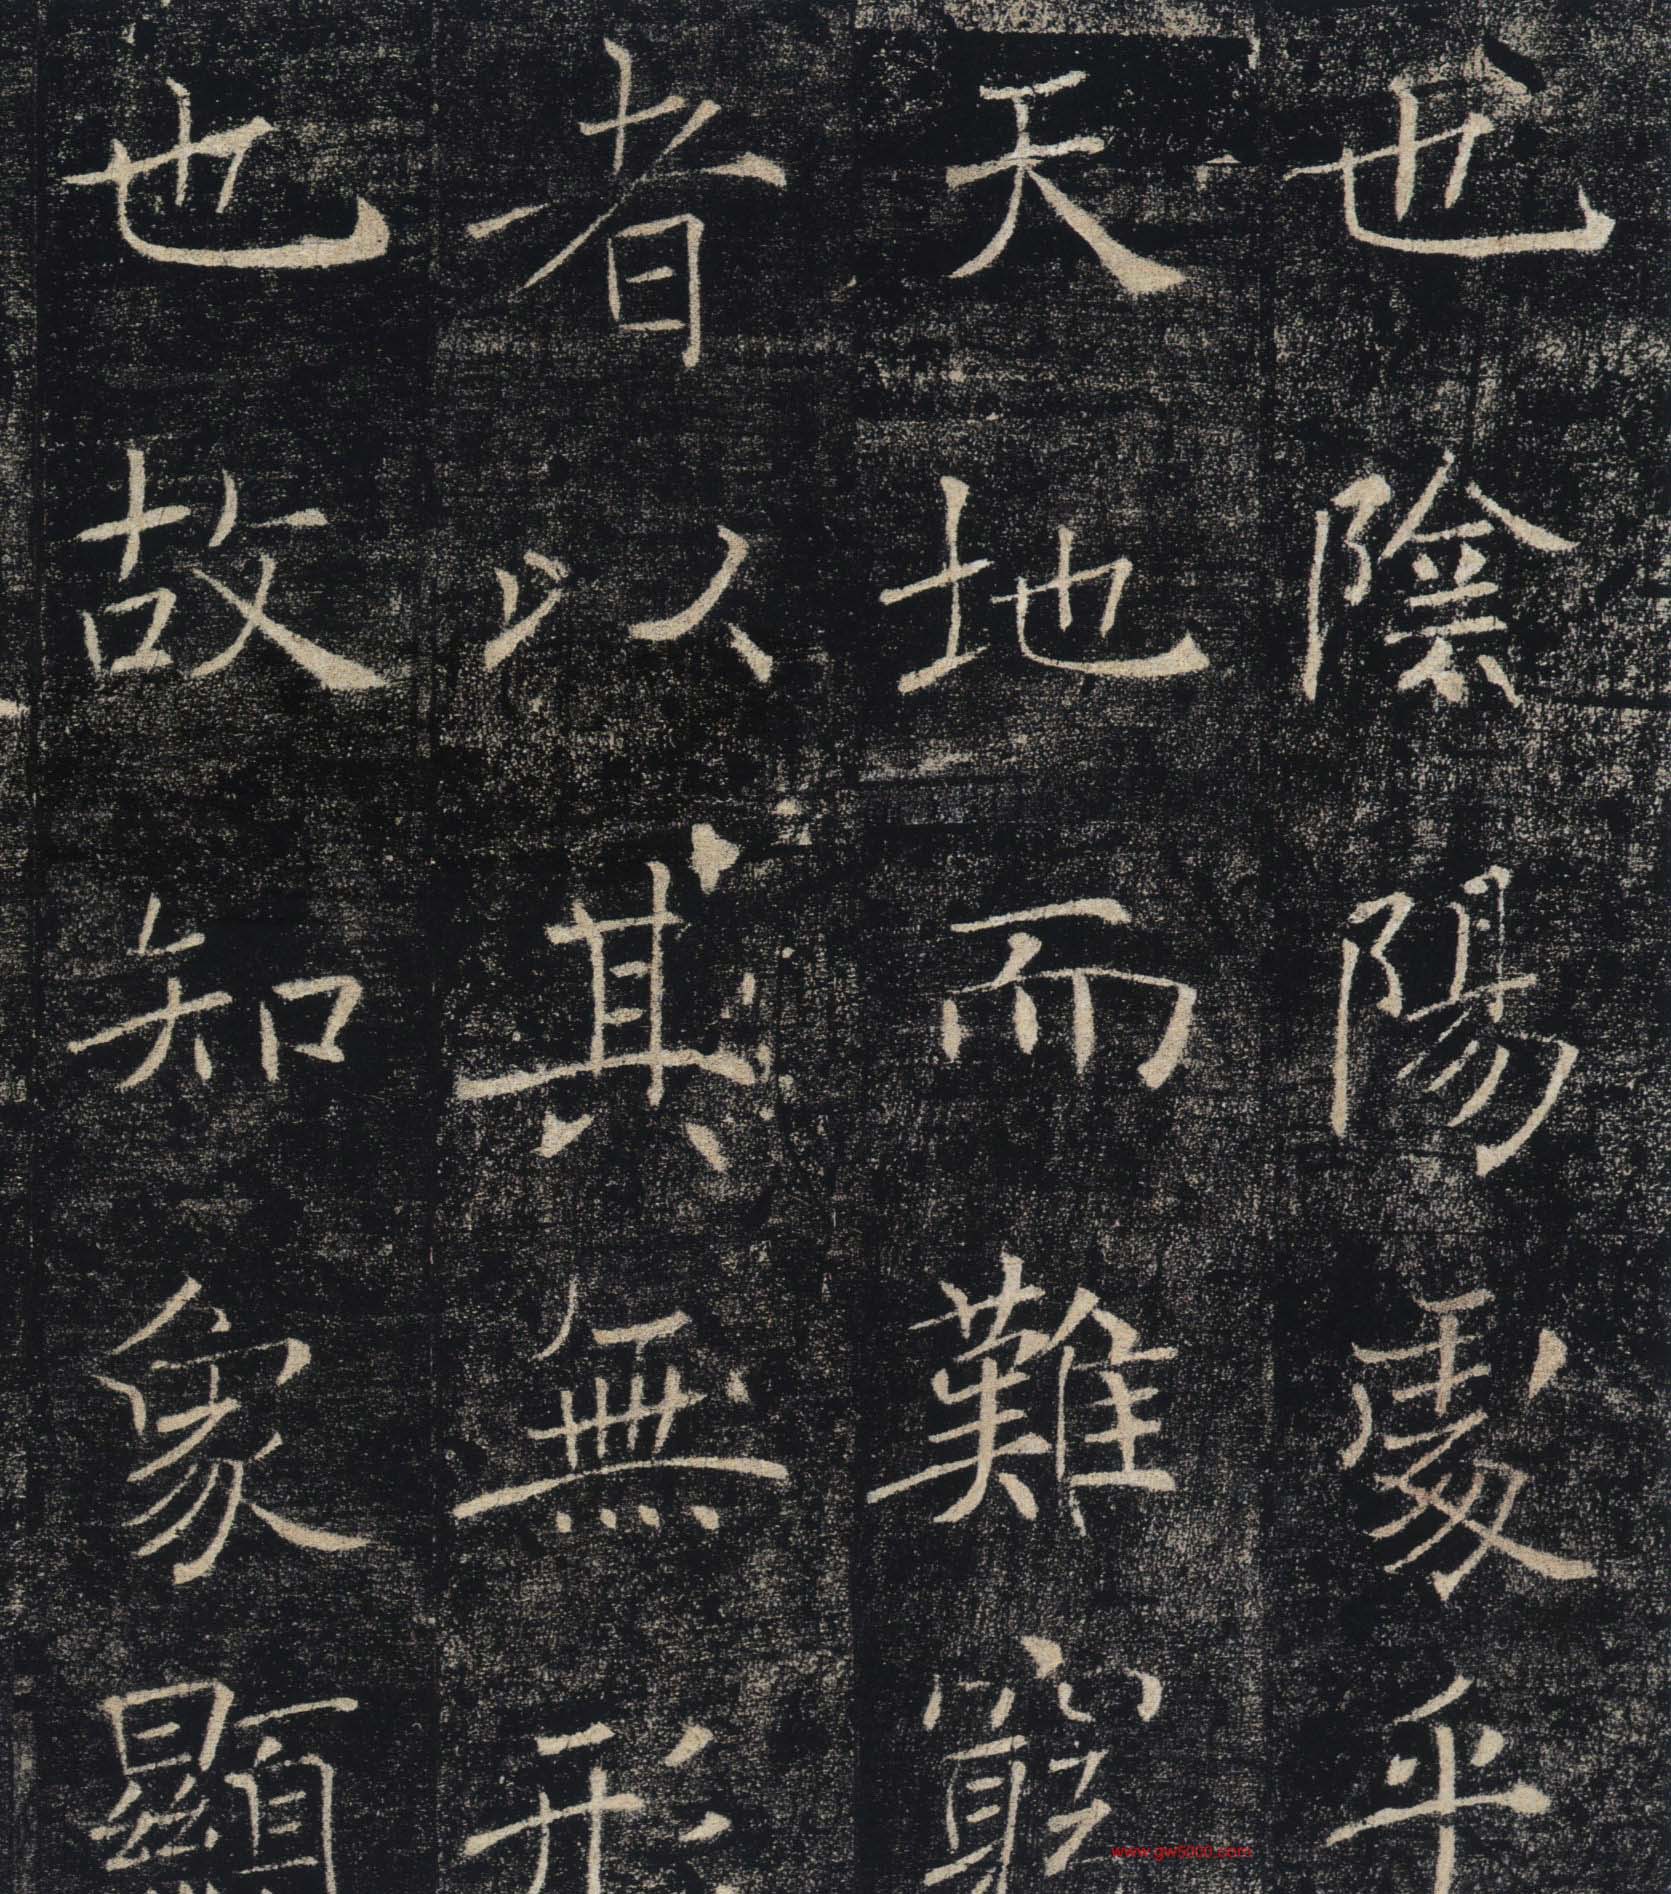 也陰陽處乎
天地而難窮
者以其無形
也故知象顯
www.gw5200.com